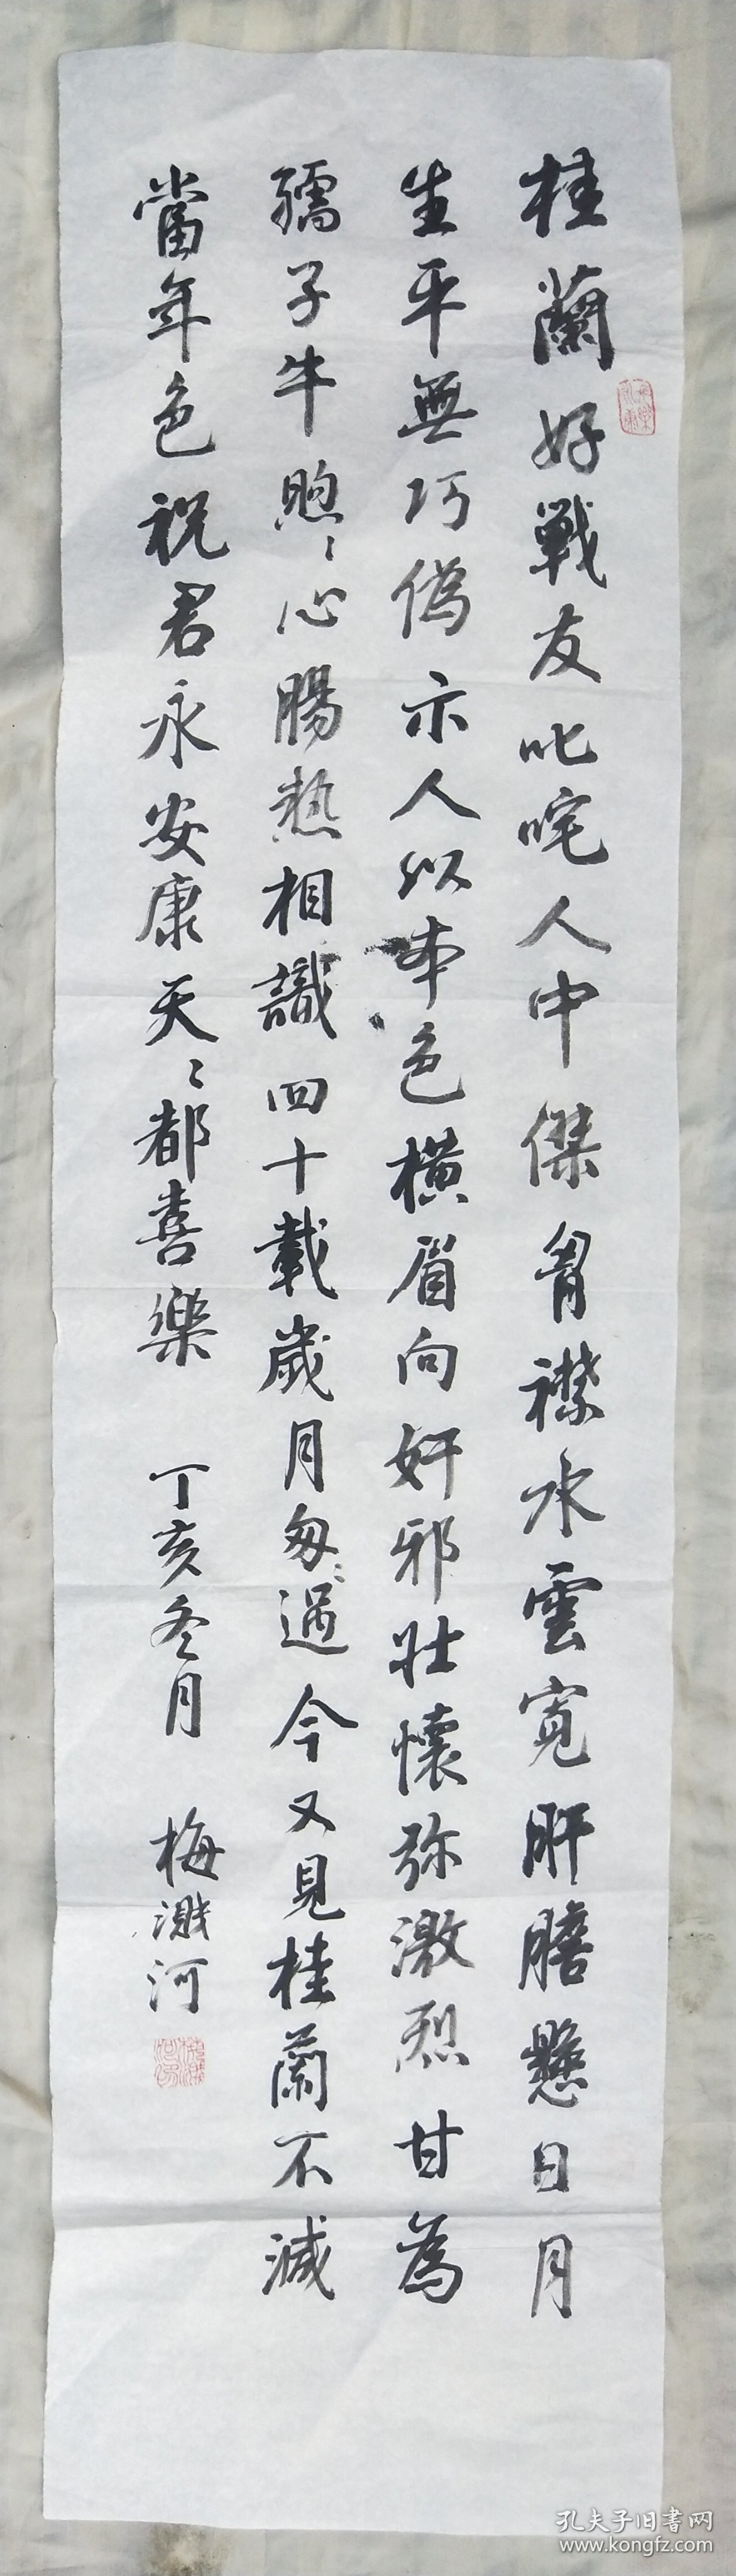 桂蘭好戰友叱咤人中傑胷襟水雲寬肝膽懸日月
生平無巧偽示人以本色橫眉向奸邪壯懷弥激烈甘為
孺子牛煦〻心腸熱相識四十載歲月匆〻過今又見桂蘭不減
當年色祝君永安康天〻都喜樂 丁亥冬月 梅濺河
孔夫子旧書网
www.kongfz.com